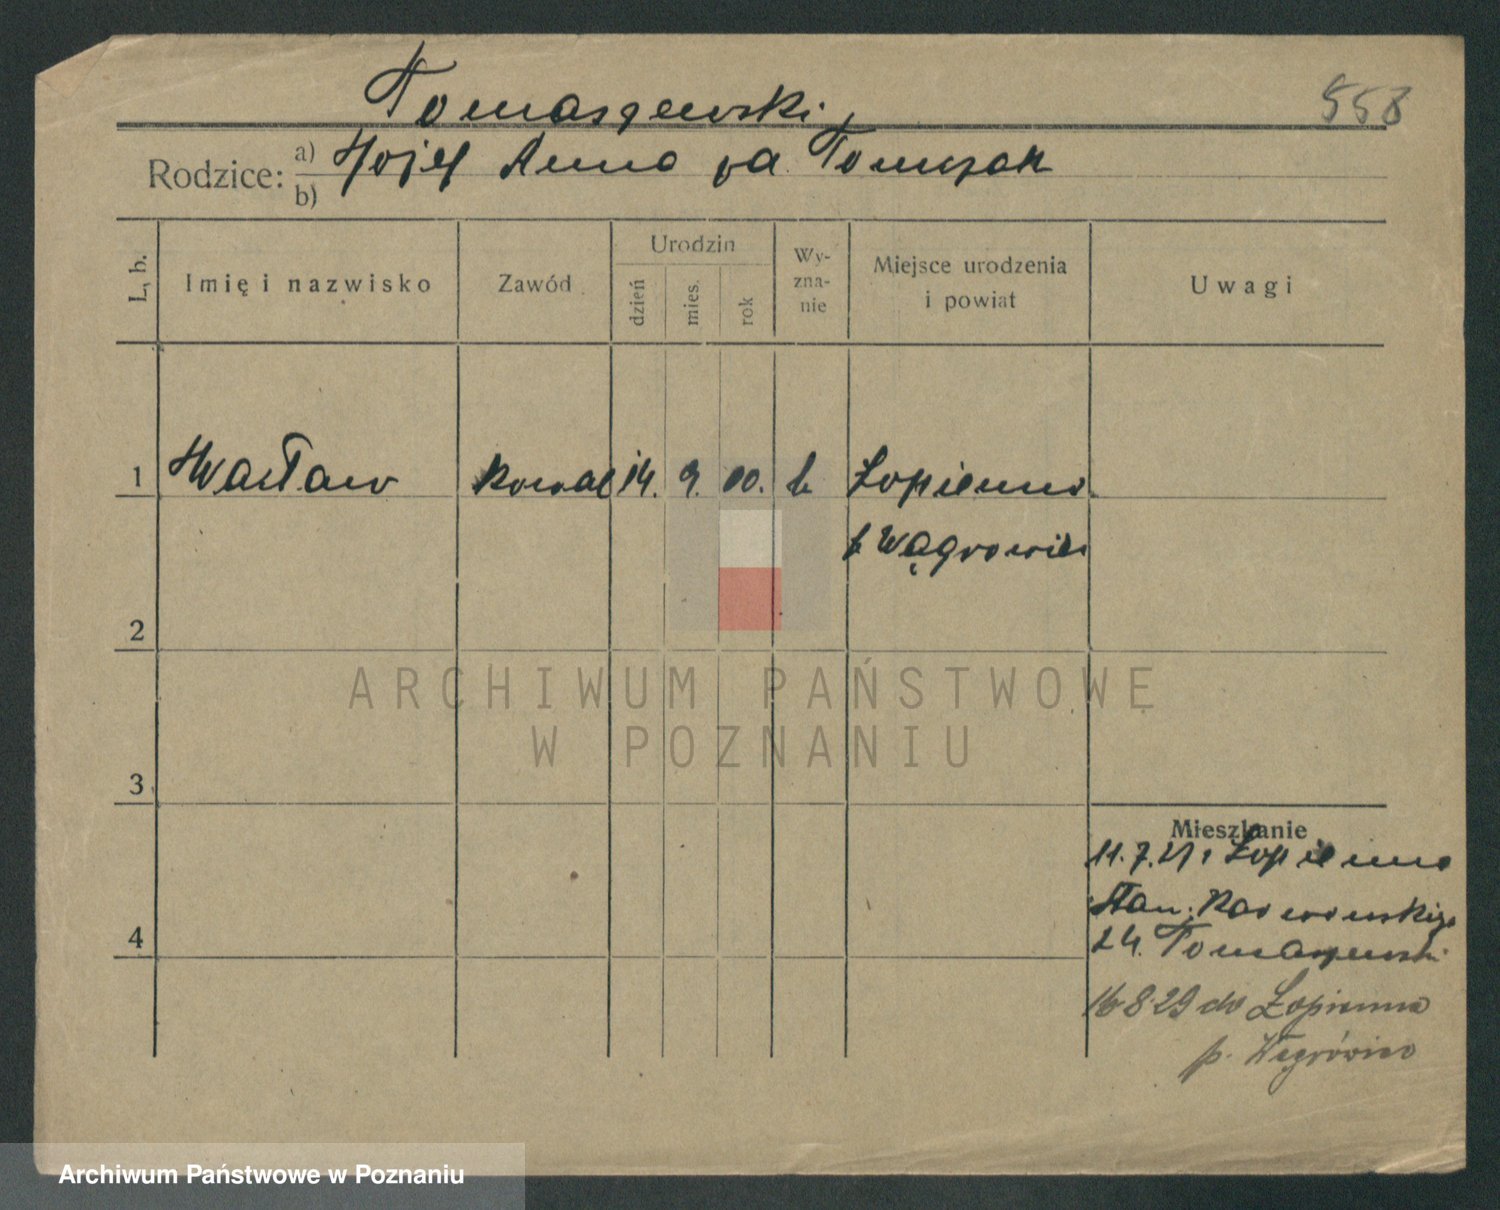 Tomaszewski
558
Rodzice: a) Wojc. Anna zd. Tomczak
b)
L. b.
Imię i nazwisko
Zawód
Urodzin
dzień
mies.
rok
Wy-
zna-
nie
Miejsce urodzenia
i powiat
Uwagi
1 Wacław kowal 14. 9. 00. k Łopienno
p Wągrowiec
2
3
4
Mieszkanie
11.7.27 Łopienno
Stan.
24. Tomaszewski
16 8 29 do Łopienna
p. Wągrówiec
ARCHIWUM PAŃSTWOWE
W POZNANIU
Archiwum Państwowe w Poznaniu